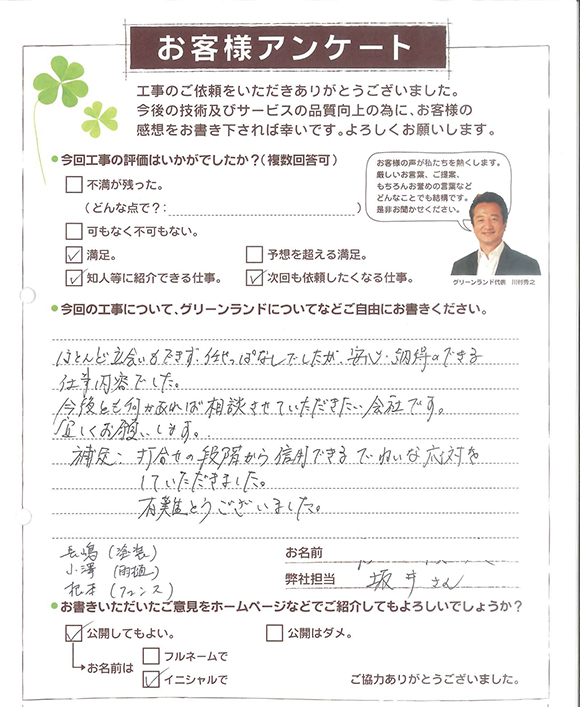 お客様アンケート
工事のご依頼をいただきありがとうございました。
今後の技術及びサービスの品質向上の為に、お客様の
感想をお書き下されば幸いです。よろしくお願いします。
今回工事の評価はいかがでしたか?(複数回答可)
不満が残った。
(どんな点で?: )
可もなく不可もない。
満足。
予想を超える満足。
知人等に紹介できる仕事。
次回も依頼したくなる仕事。
お客様の声が私たちを熱くします。
厳しいお言葉、ご提案、
もちろんお誉めの言葉など
どんなことでも結構です。
是非お聞かせください。
グリーンランド代表 川村秀之
今回の工事について、グリーンランドについてなどご自由にお書きください。
ほとんど立会いもできず、任せっぱなしでしたが、安心・納得のできる
仕事内容でした。
今後とも何かあれば相談させていただきたい会社です。
宜しくお願いします。
補足: 打合せの段階から信用できるていねいな応対を
していただきました。
有難とうございました。
長嶋(塗装)
小澤(雨樋)
(フェンス)
お名前
弊社担当 坂井さん
お書きいただいたご意見をホームページなどでご紹介してもよろしいでしょうか?
公開してもよい。
公開はダメ。
お名前は
フルネームで
イニシャルで
ご協力ありがとうございました。